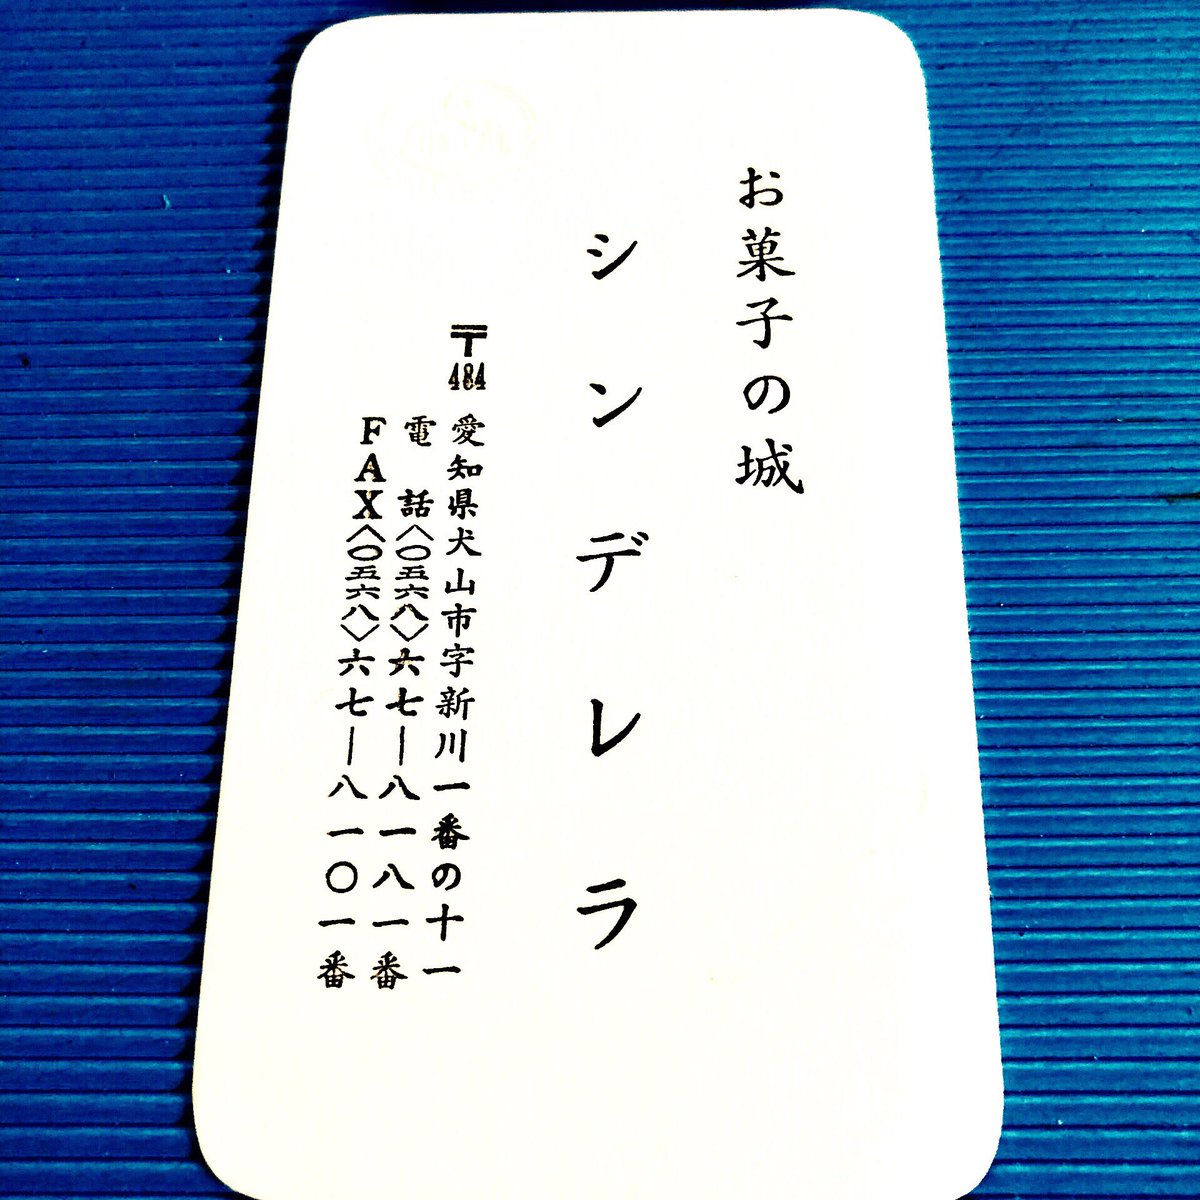 お菓子の城
シンデレラ
〒484
愛知県犬山市字新川一番の十一
電話〈〇五六八〉六七―八一八一番
FAX〈〇五六八〉六七―八一〇一番